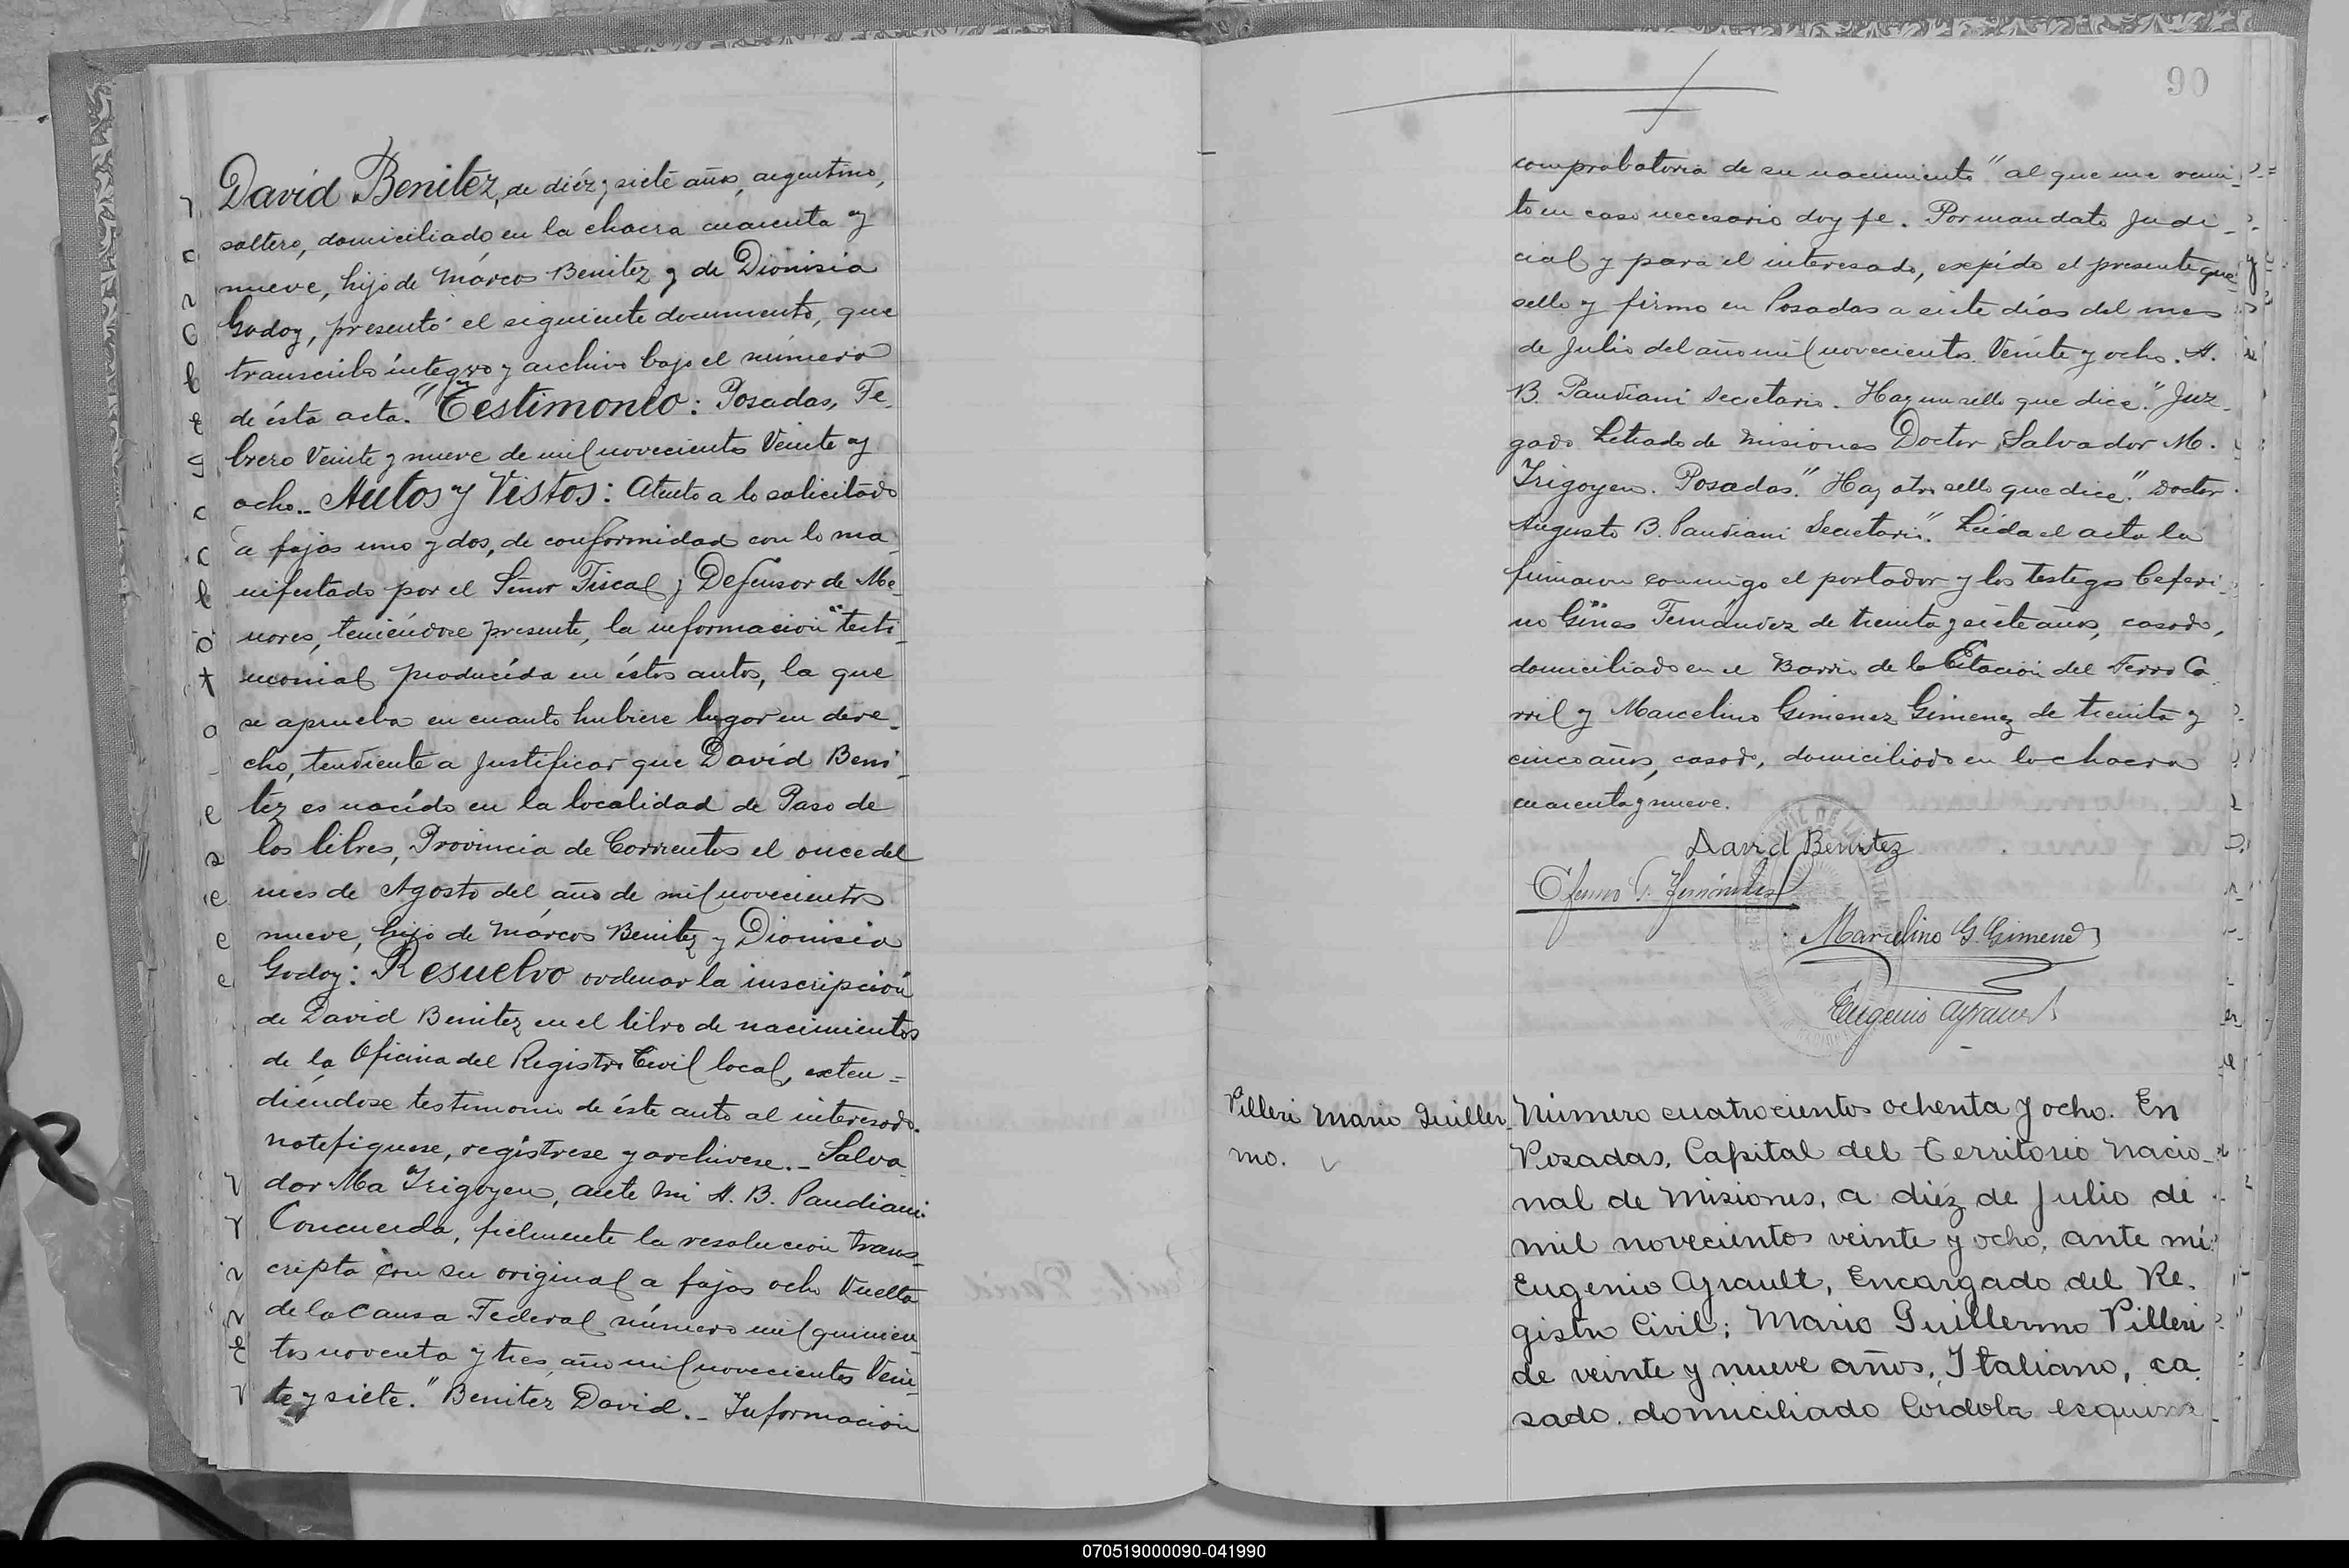 David Benitez, de diéz y siete años, argentino,
soltero, domiciliado en la chacra cuarenta y
nueve, hijo de Márcos Benitez y de Dionisia
Godoy, presentó el siguiente documento, que
transcribo íntegro y archivo bajo el número
de ésta acta. "Testimonio: Posadas, Fe-
brero Veinte y nueve de mil novecientos Veinte y
ocho.- Autos y Vistos: Atento a lo solicitado
a fojas uno y dos, de conformidad con lo ma-
nifestado por el Señor Fiscal y Defensor de Me-
nores, teniéndose presente, la información testi-
monial producida en éstos autos, la que
se aprueba en cuanto hubiere lugar en dere-
cho, tendiente a justificar que David Beni-
tez es nacido en la localidad de Paso de
los libres, Provincia de Corrientes el once del
mes de Agosto del año de mil novecientos
nueve, hijo de Márcos Benitez y Dionisia
Godoy: Resuelvo ordenar la inscripción
de David Benitez en el libro de nacimientos
de la Oficina del Registro Civil local, exten=
diéndose testimonio de éste auto al interesado.
notefiquese, regístrese y archivese.- Salva-
dor Ma Irigoyen, ante mi A. B. Pandiani.
Concuerda, fielmente la resolución trans-
cripta con su original a fojas ocho Vuelta
de la Causa Federal número mil quinien-
tos noventa y tres, año mil novecientos Vein-
te y siete." Benitez David.- Información
90
comprobatoria de su nacimiento" al que me remi-
to en caso necesario doy fe. Por mandato Judi-
cial y para el interesado, expído el presente que
sello y firmo en Posadas a siete días del mes
de Julio del año mil novecientos Veinte y ocho. A.
B. Pandiani Secretario. Hay un sello que dice: "Juz-
gado Letrado de Misiones Doctor Salvador M.
Irigoyen. Posadas." Hay otro sello que dice: "Doctor
Augusto B. Pandiani Secretario." Leída el acta la
firmaron conmigo el portador y los testigos Ceferi-
no Gines Fernández de treinta y siete años, casado,
domiciliado en el Barrio de la Estación del Ferro Ca-
rril y Marcelino Gimenez Gimenez de treinta y
cinco años, casado, domiciliado en la chacra
cuarenta y nueve.
David Benitez
Marcelino G. Gimenez
Eugenio Ayrault
Villeri Mario Guiller-
mo.
Número cuatrocientos ochenta y ocho. En
Posadas, Capital del Territorio Nacio-
nal de Misiones, a diéz de Julio de
mil novecientos veinte y ocho, ante mí:
Eugenio Ayrault, Encargado del Re-
gistro Civil; Mario Guillermo Villeri
de veinte y nueve años, Italiano, ca-
sado, domiciliado Córdoba esquina
070519000090-041990